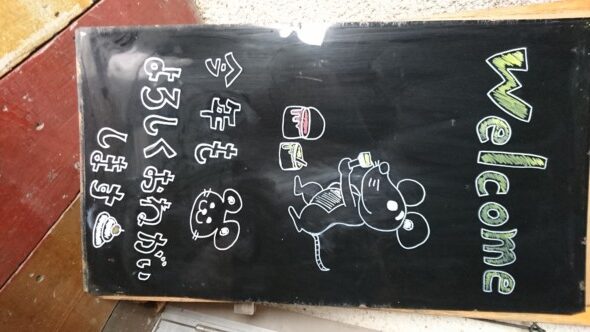 Welcome
今年も
よろしくおねがい
します